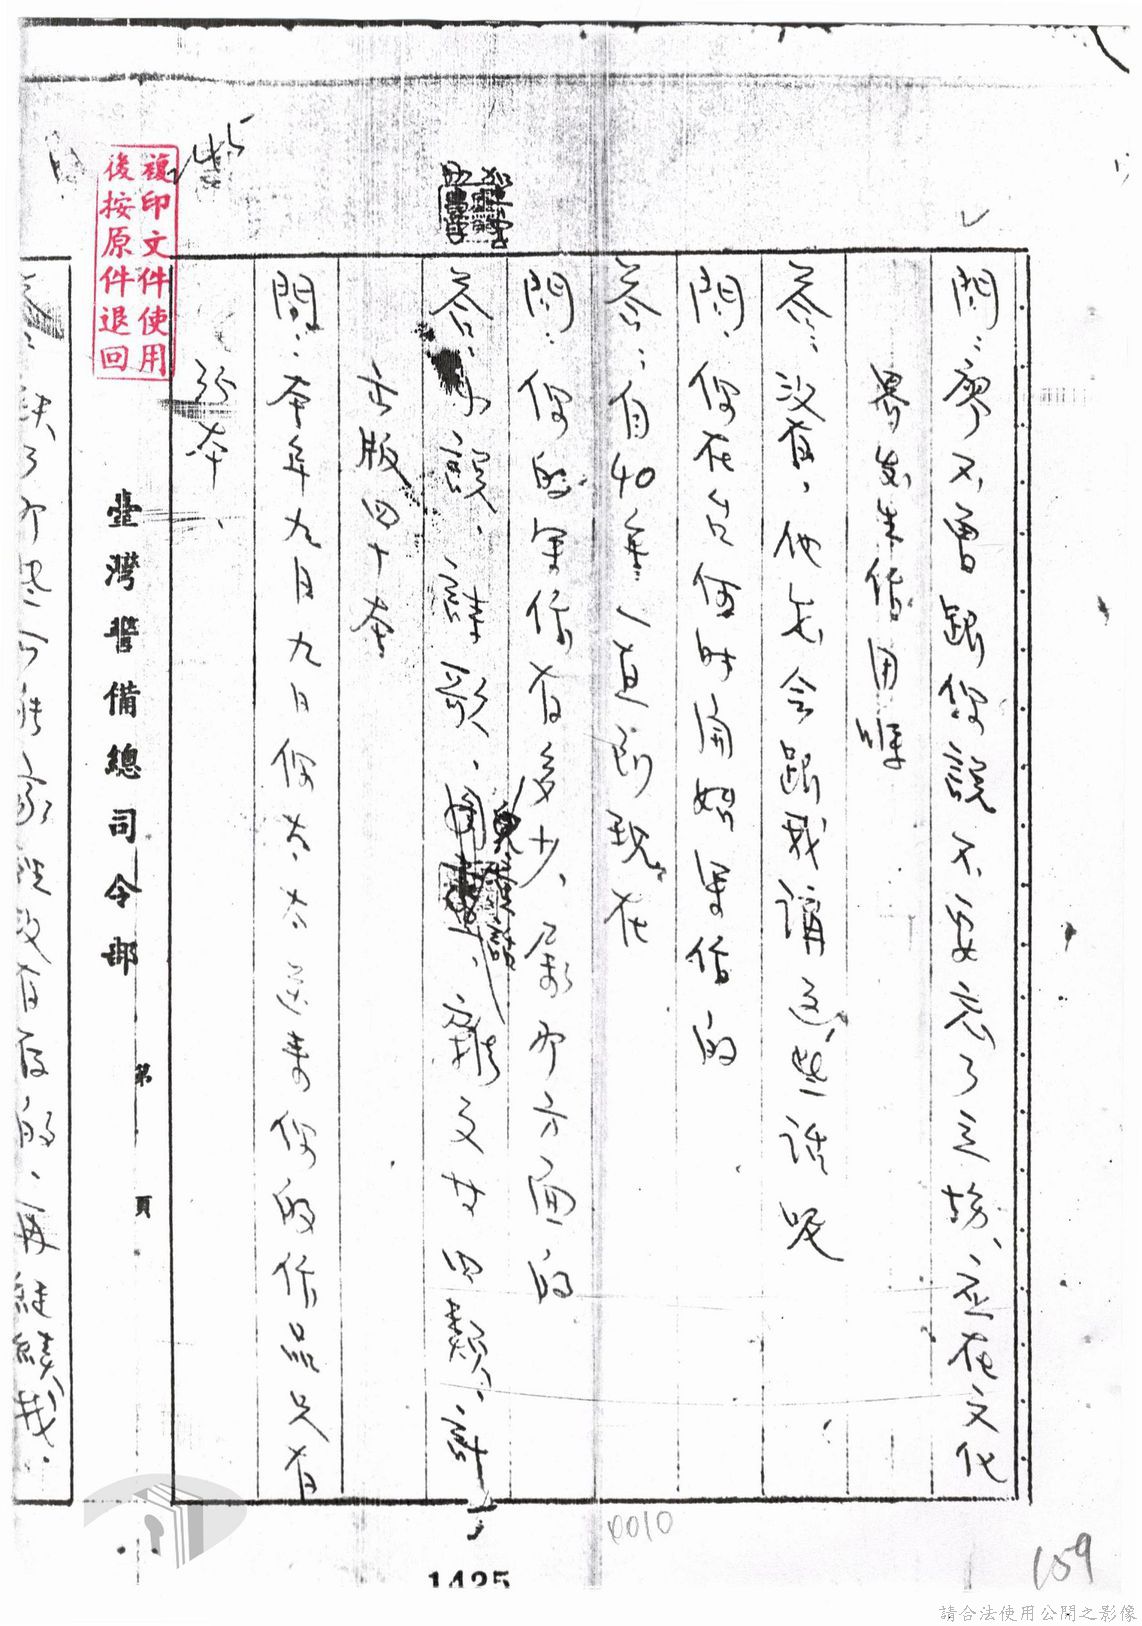 問：廖不曾跟你說不要忘了立場、應在文化
界發生作用嗎
答：沒有，他怎會跟我講這些話呢
問：你在台何時開始寫作的
答：自40年一直到現在
問：你的寫作有多少，屬那方面的
答：小說、詩歌、兒童讀、雜文廿四類，計
出版四十本
問：本年九月九日你太太送來你的作品只有
卅本、
臺灣警備總司令部
第 頁
缺了那些可能家裡沒有存的，再繼續找。
複印文件使用
後按原件退回
1425
0010
159
請合法使用公開之影像